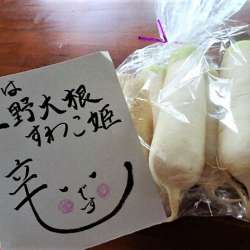 は
野大根
すわこ姫
辛